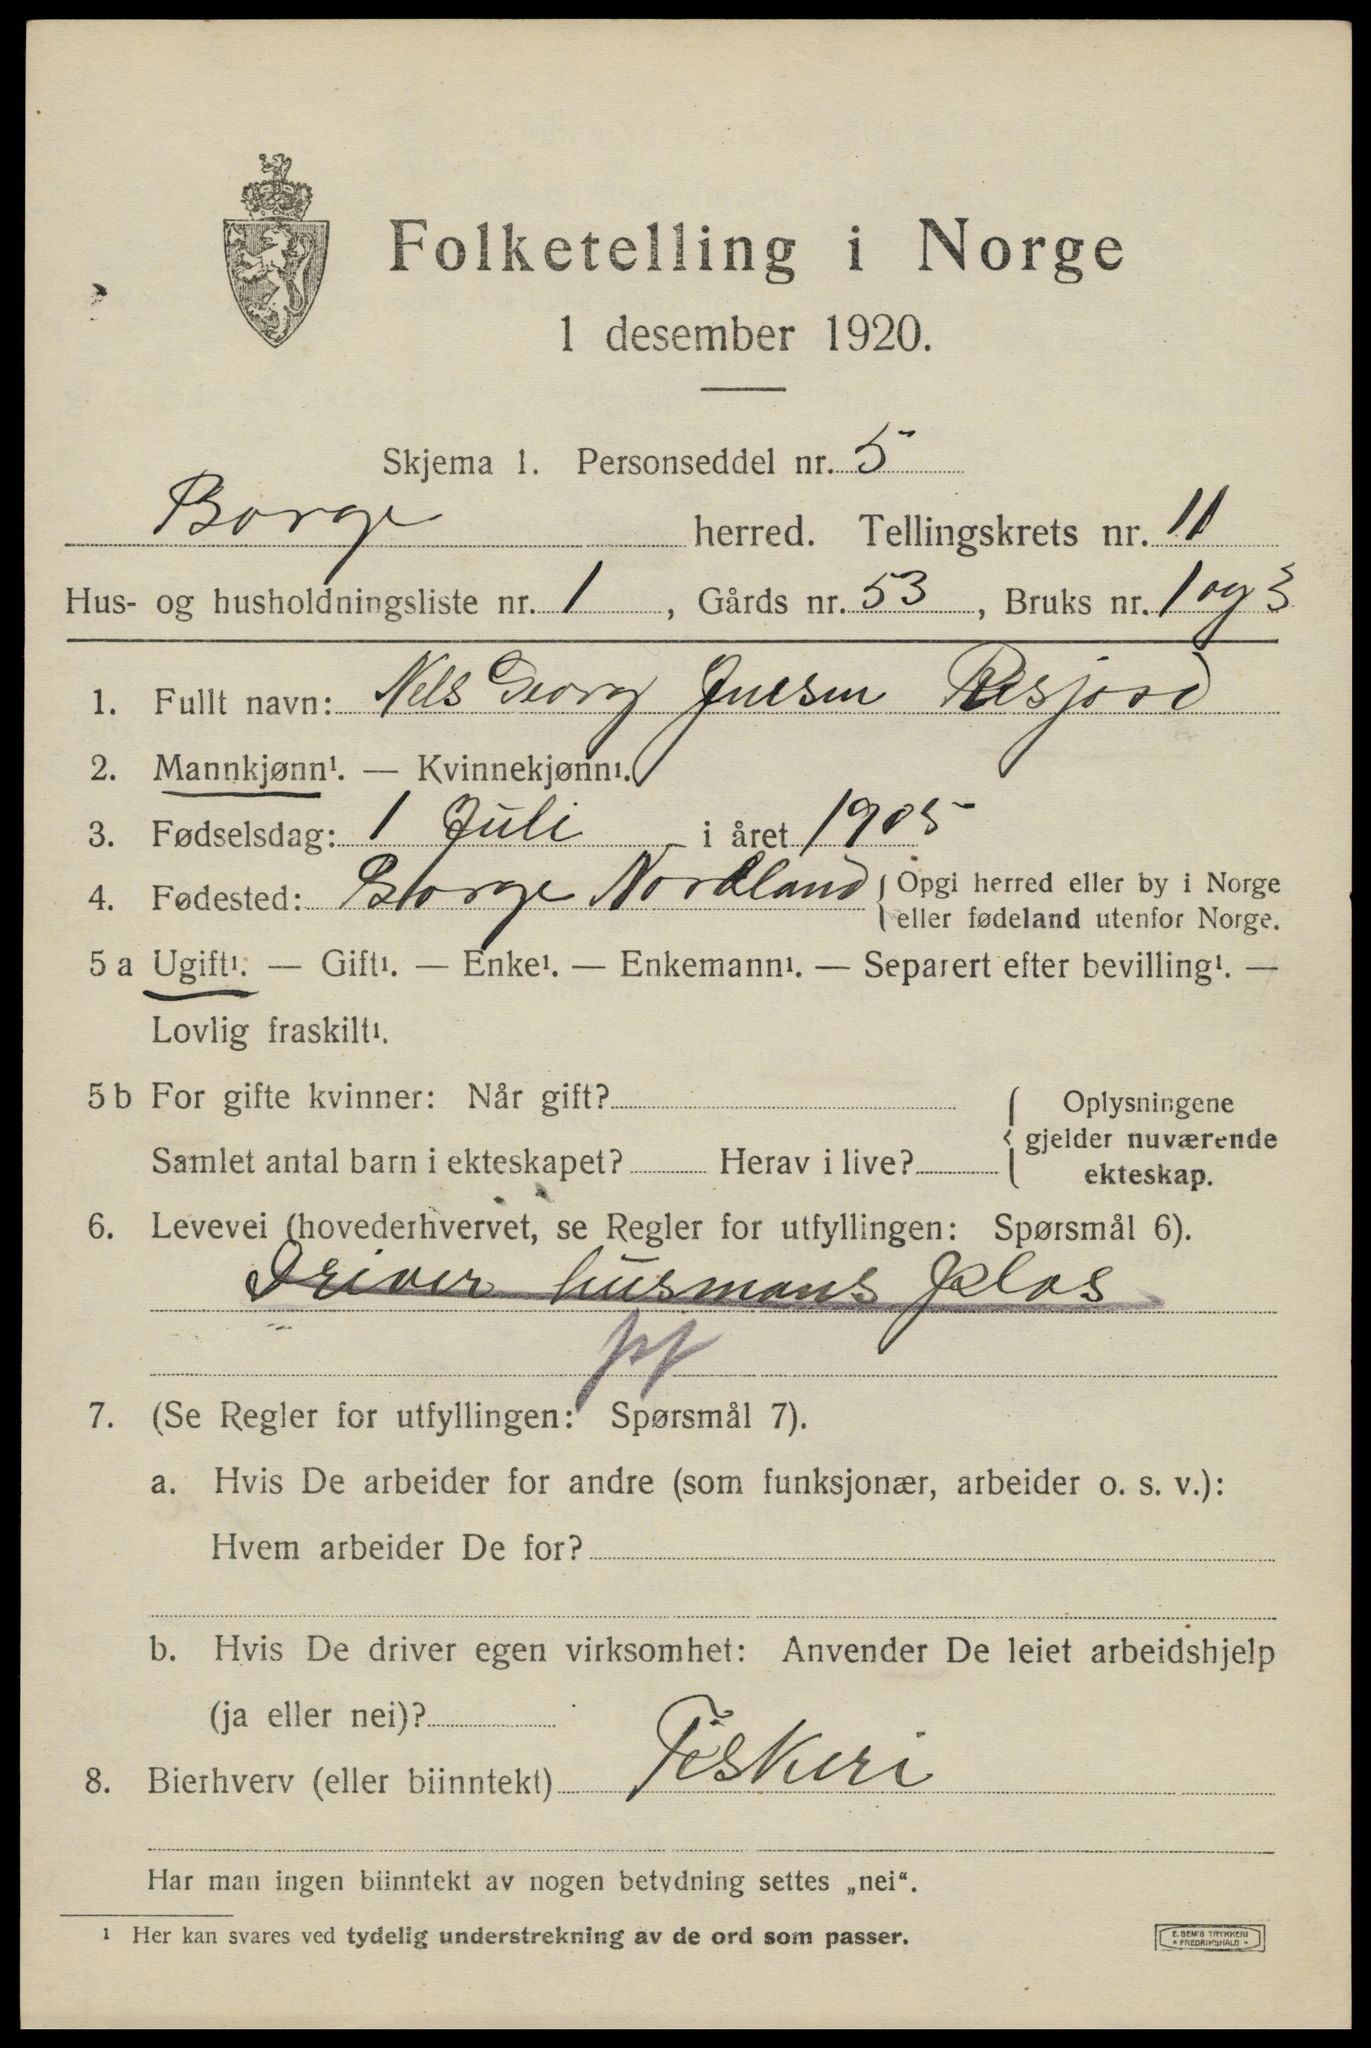 Folketelling i Norge
1 desember 1920.
Skjema 1. Personseddel nr. 5
Borge herred. Tellingskrets nr. 11
Hus- og husholdningsliste nr. 1, Gårds nr. 53, Bruks nr. 1 og 3
1. Fullt navn: Nels Georg Jensen
2. Mannkjønn¹. — Kvinnekjønn¹.
3. Fødselsdag: 1 Juli i året 1905
4. Fødested: Borge Nordland { Opgi herred eller by i Norge
eller fødeland utenfor Norge.
5 a Ugift¹. — Gift¹. — Enke¹. — Enkemann¹. — Separert efter bevilling¹. —
Lovlig fraskilt¹.
5 b For gifte kvinner: Når gift? { Oplysningene
gjelder nuværende
ekteskap.
Samlet antal barn i ekteskapet? Herav i live?
6. Levevei (hovederhvervet, se Regler for utfyllingen: Spørsmål 6).
Driver husmans plas
7. (Se Regler for utfyllingen: Spørsmål 7).
a. Hvis De arbeider for andre (som funksjonær, arbeider o. s. v.):
Hvem arbeider De for?
b. Hvis De driver egen virksomhet: Anvender De leiet arbeidshjelp
(ja eller nei)?
8. Bierhverv (eller biinntekt) Fiskeri
Har man ingen biinntekt av nogen betydning settes „nei“.
¹ Her kan svares ved tydelig understrekning av de ord som passer.
E. SEM'S TRYKKERI
FREDRIKSHALD